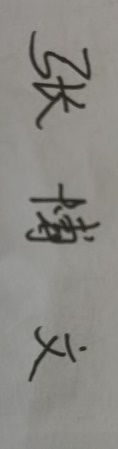 张博文